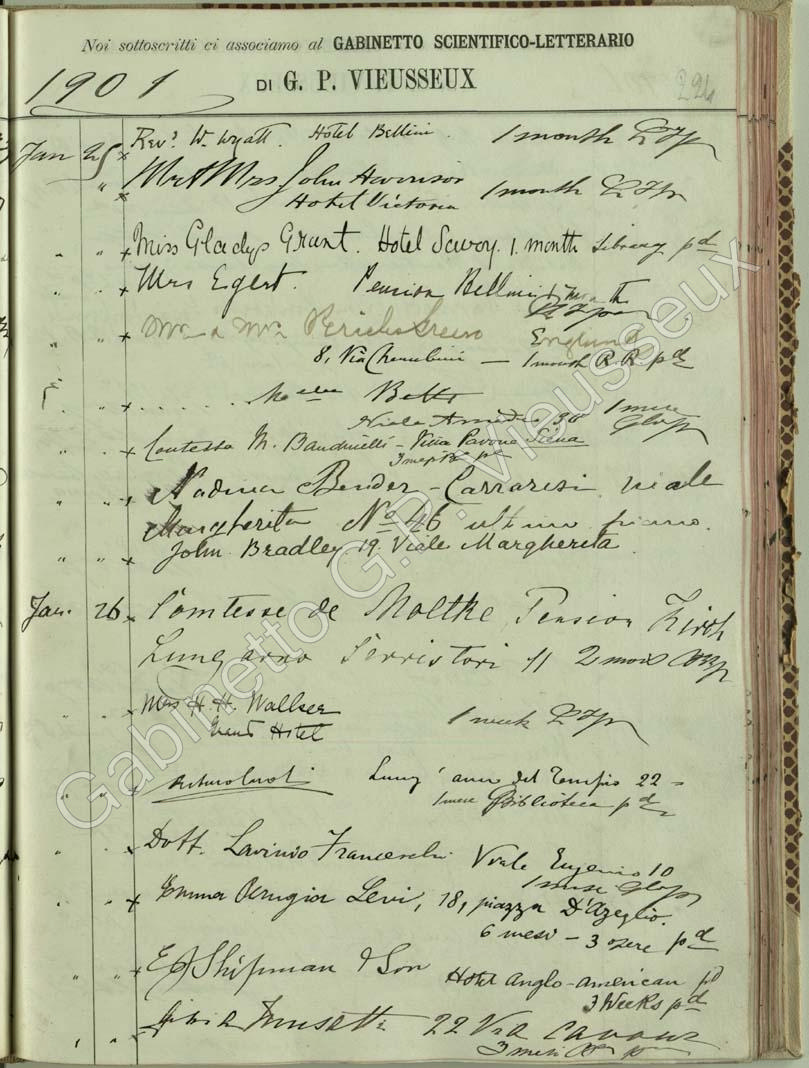 Noi sottoscritti ci associamo al GABINETTO SCIENTIFICO-LETTERARIO
1901
DI G. P. VIEUSSEUX
224
Jan 25 x Revd. W. Wyatt. Hotel Bellini. 1 month
" x Mr & Mrs John Harrison 1 month
Hotel Victoria
" " x Miss Gladys Grant. Hotel Savoy. 1. month Library pd
" " x Mrs Egert. Pension Bellini 1 month
" " x Mr & Mrs England
8, Via Cherubini — 1 month R.R. pd
" x Betts
Viale Amedeo 30 1 mese
" " x Contessa M. Bandinelli - Villa Pavone Siena
3 mesi pd
" " x Nadina Bender - Carraresi viale
Margherita No 46 ultimo piano.
" " x John Bradley 19. Viale Margherita.
Jan. 26 x Comtesse de Moltke, Pension Kirch
Lungarno Serristori 11 2 mois
" x Mrs H. H. Walker
Grand Hotel 1 week
" " x Lung' arno del Tempio 22 -
1 mese Biblioteca pd
" " x Dott. Lavinio Franceschi Viale Eugenio 10
1 mese
" " x Emma Perugia Levi, 18, piazza D'Azeglio.
6 mesi - 3 opere pd
" " x E J Shipman & Son Hotel Anglo-american pd
3 Weeks pd
" " 22 Via Cavour
3 mesi
Gabinetto G.P. Vieusseux